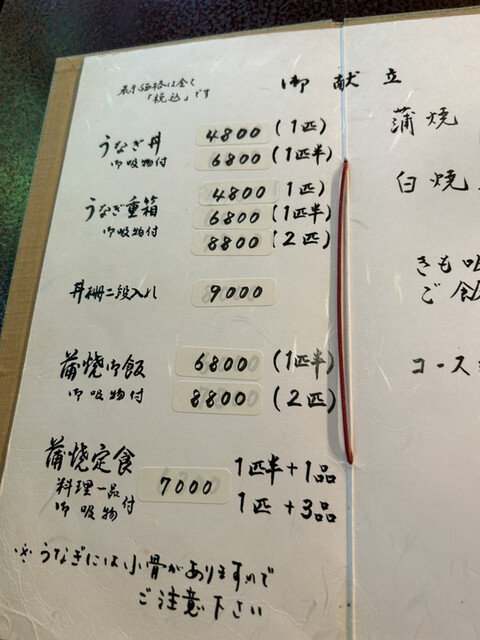 御献立
表示価格は全て
「税込」です
うなぎ丼 4800 (1匹)
御吸物付 6800 (1匹半)
うなぎ重箱 4800 1匹)
御吸物付 6800 (1匹半
8800 (2匹)
丼 二段入れ 9000
蒲焼御飯 6800 (1匹半)
御吸物付 8800 (2匹)
蒲焼定食
料理一品
御吸物付
7000
1匹半+1品
1匹+3品
※うなぎには小骨がありますので
ご注意下さい
蒲焼
白焼
きも吸
ご飯
コース